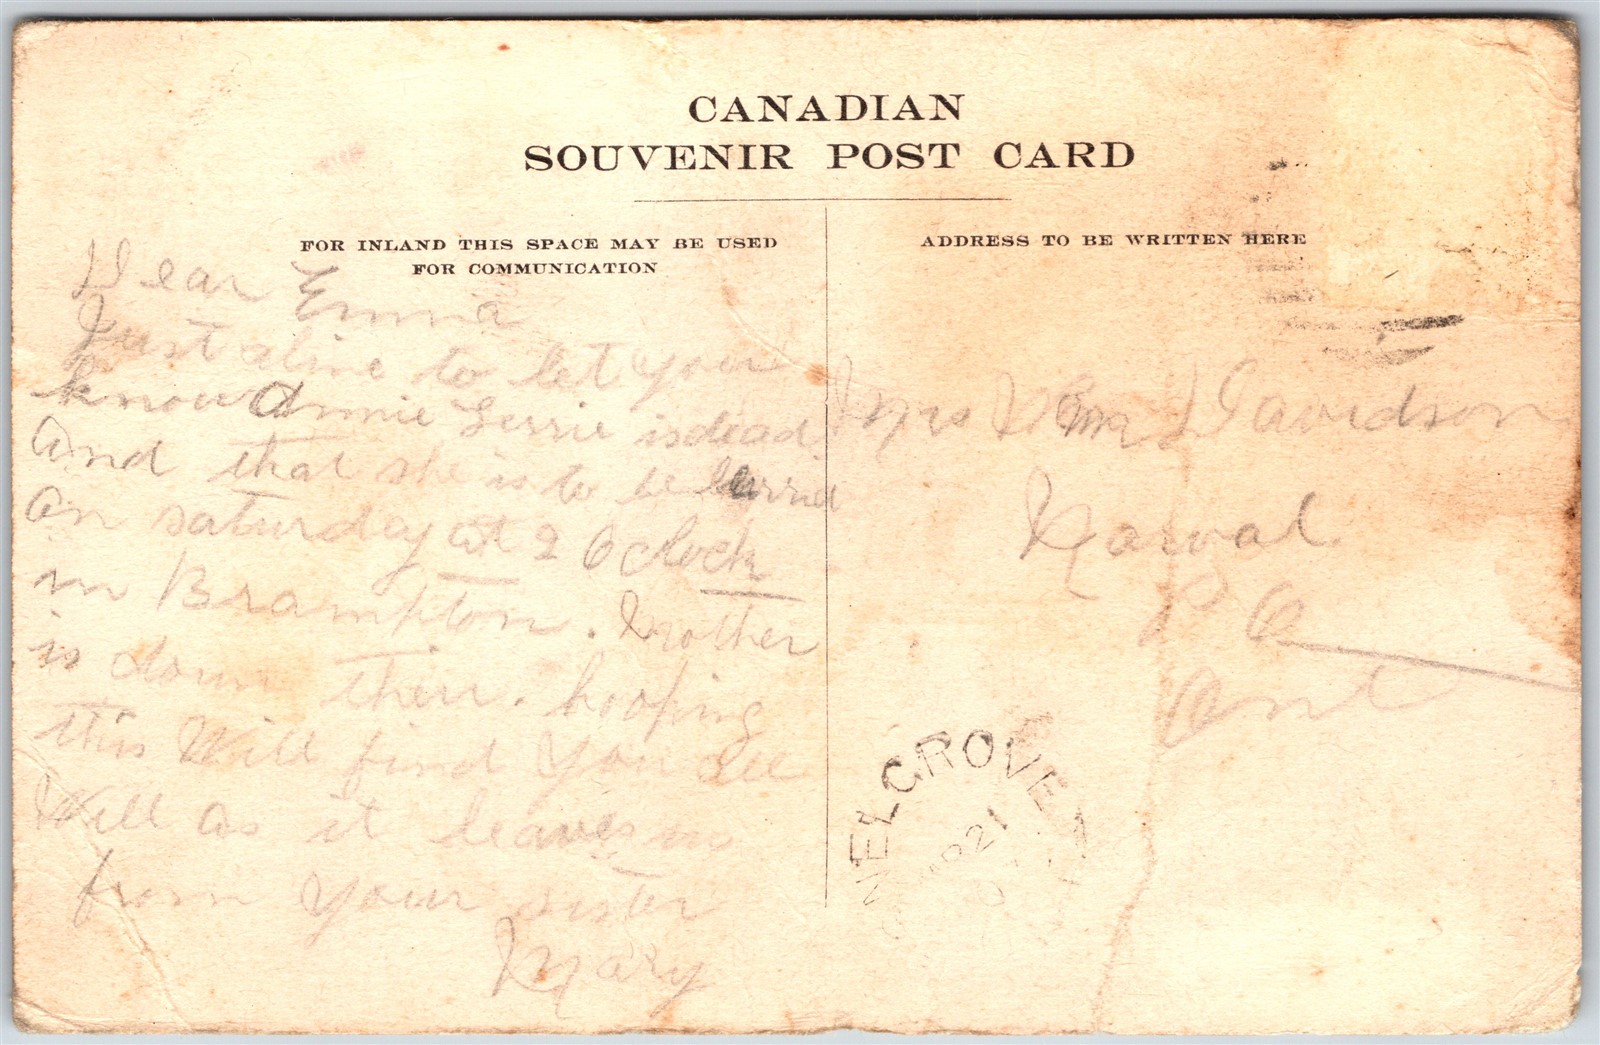 CANADIAN
SOUVENIR POST CARD
FOR INLAND THIS SPACE MAY BE USED
FOR COMMUNICATION
ADDRESS TO BE WRITTEN HERE
Dear Emma
Just a line to let you
know Annie Gerrie is dead
And that she is to be burried
on saturday at 2 O clock
in Brampton. Mother
is down their. hooping
this Will find you all
Will as it leaves us
from your sister
Mary
Mrs Wm Davidson
Norval
P O
Ont
MELGROVE
21